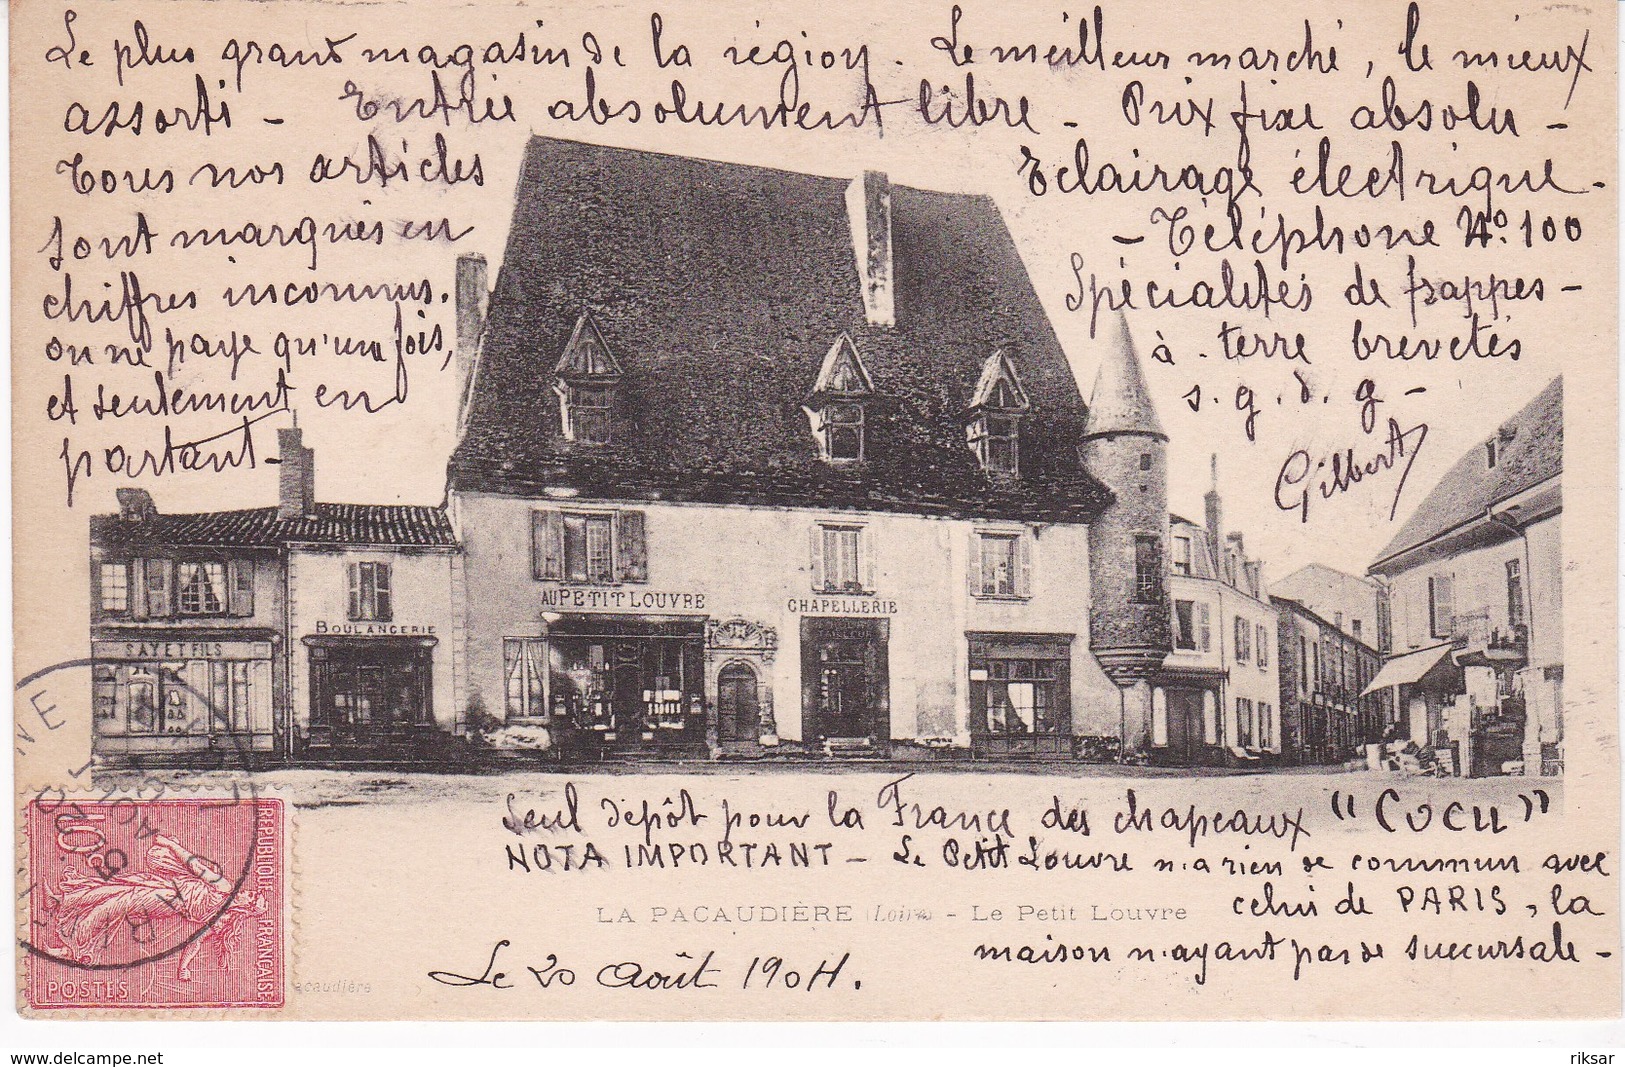 Le plus grand magasin de la région. Le meilleur marché, le mieux
assorti - Entrée absolument libre - Prix fixe absolu -
Tous nos articles
sont marqués en
chiffres inconnus.
on ne paye qu'une fois,
et seulement en
partant -
Eclairage électrique -
- Téléphone N° 100
Spécialités de frappes -
à - terre brevetés
s. g. d. g -
Gilbert
AU PETIT LOUVRE
CHAPELLERIE
TAILLEUR
BOULANGERIE
SAYET FILS
Seul dépôt pour la France des chapeaux "Cocu"
NOTA IMPORTANT - Le Petit Louvre n'a rien de commun avec
celui de PARIS, la
maison n'ayant pas de succursale -
LA PACAUDIÈRE (Loire) - Le Petit Louvre
Le 20 Août 1904.
acaudière
10c
REPUBLIQUE FRANÇAISE
POSTES
www.delcampe.net
riksar